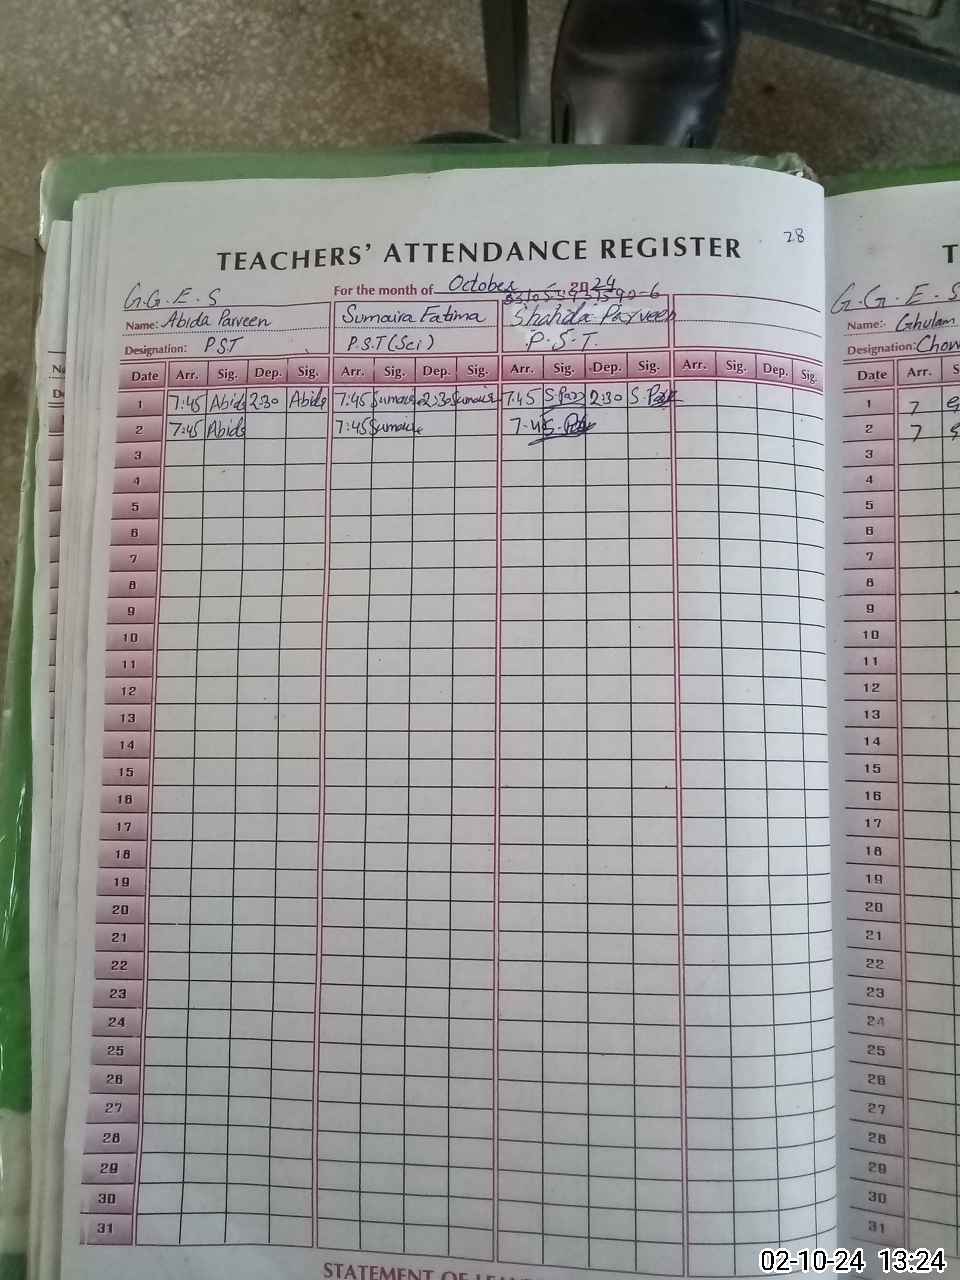 28
TEACHERS' ATTENDANCE REGISTER
For the month of October 2024
G.G.E.S
Name: Abida Parveen Sumaira Fatima Shahida Parveen
Designation: PST P.S.T (Sci) P.S.T.
Date Arr. Sig. Dep. Sig. Arr. Sig. Dep. Sig. Arr. Sig. Dep. Sig. Arr. Sig. Dep. Sig.
1 7:45 Abida 2:30 Abida 7:45 Sumaira 2:30 Sumaira 7:45 S.Par 2:30 S.Par
2 7:45 Abida 7:45 Sumaira 7:45 S.Par
3
4
5
6
7
8
9
10
11
12
13
14
15
16
17
18
19
20
21
22
23
24
25
26
27
28
29
30
31
STATEMENT OF
T
G.G.E.S
Name:- Ghulam
Designation: Chow
Date Arr. S
1 7
2 7
3
4
5
6
7
8
9
10
11
12
13
14
15
16
17
18
19
20
21
22
23
24
25
26
27
28
29
30
31
02-10-24 13:24